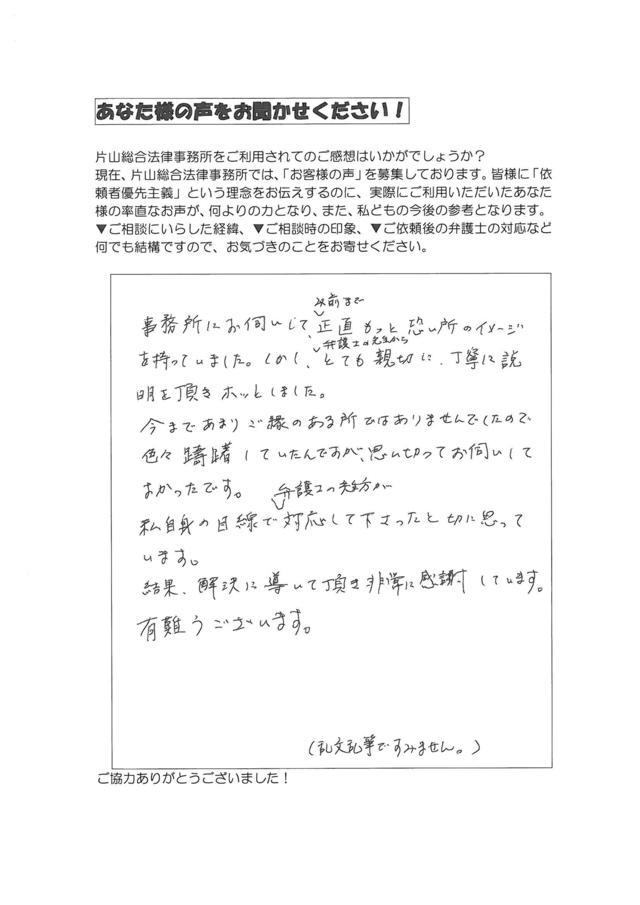 あなた様の声をお聞かせください！
片山総合法律事務所をご利用されてのご感想はいかがでしょうか？
現在、片山総合法律事務所では、「お客様の声」を募集しております。皆様に「依
頼者優先主義」という理念をお伝えするのに、実際にご利用いただいたあなた
様の率直なお声が、何よりの力となり、また、私どもの今後の参考となります。
▼ご相談にいらした経緯、▼ご相談時の印象、▼ご依頼後の弁護士の対応など
何でも結構ですので、お気づきのことをお寄せください。
以前まで
事務所にお伺いして、正直もっと恐い所のイメージ
弁護士の先生から
を持っていました。しかし、とても親切に、丁寧に説
明を頂きホッとしました。
今まであまりご縁のある所ではありませんでしたので
色々躊躇していたんですが、思い切ってお伺いして
よかったです。
弁護士の先生方が
私自身の目線で対応して下さったと切に思って
います。
結果、解決に導いて頂き非常に感謝しています。
有難うございます。
（乱文乱筆ですみません。）
ご協力ありがとうございました！